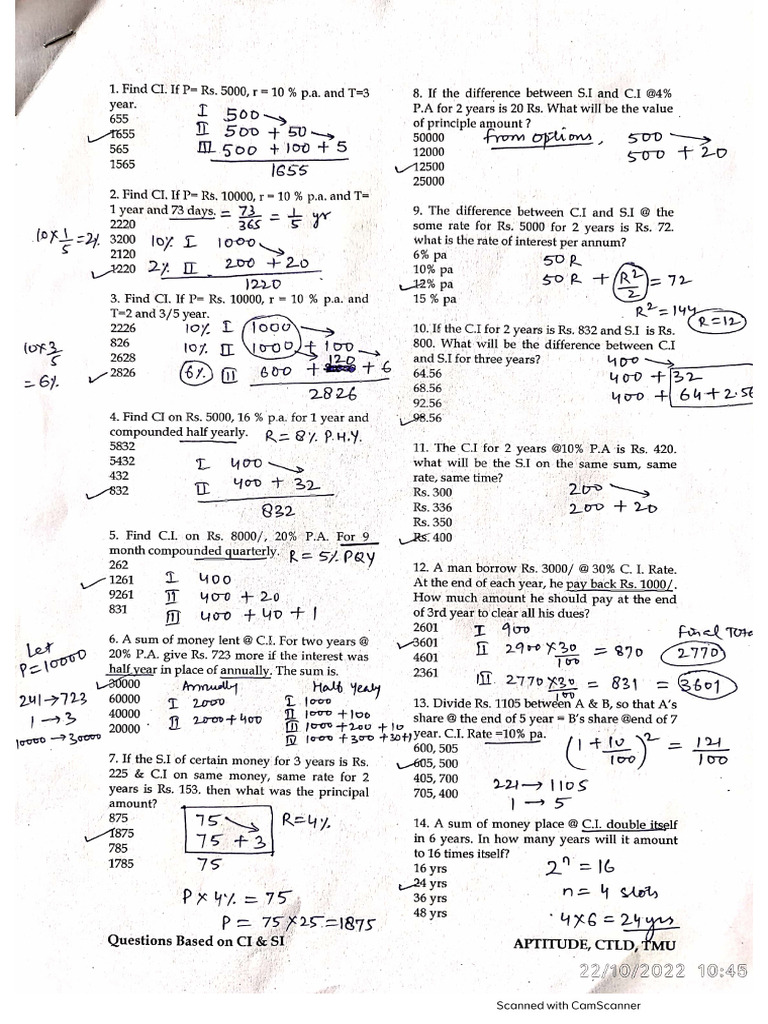 1. Find CI. If P= Rs. 5000, r = 10 % p.a. and T=3
year.
655
1655
565
1565
I 500
II 500 + 50
III 500 + 100 + 5
1655
2. Find CI. If P= Rs. 10000, r = 10 % p.a. and T=
1 year and 73 days. = 73/365 = 1/5 yr
2220
3200
2120
1220
10 × 1/5 = 2%
10% I 1000
2% II 200 + 20
1220
3. Find CI. If P= Rs. 10000, r = 10 % p.a. and
T=2 and 3/5 year.
2226
826
2628
2826
10 × 3/5
= 6%
10% I 1000
10% II 1000 + 100
6% III 600 + 120 + 6
2826
4. Find CI on Rs. 5000, 16 % p.a. for 1 year and
compounded half yearly. R = 8% P.H.Y.
5832
5432
432
832
I 400
II 400 + 32
832
5. Find C.I. on Rs. 8000/, 20% P.A. For 9
month compounded quarterly. R = 5% PQY
262
1261
9261
831
I 400
II 400 + 20
III 400 + 40 + 1
6. A sum of money lent @ C.I. For two years @
20% P.A. give Rs. 723 more if the interest was
half year in place of annually. The sum is.
30000
60000
40000
20000
Let
P=10000
241→723
1→3
10000→30000
Annually
I 2000
II 2000+400
Half Yealy
I 1000
II 1000+100
III 1000+200+10
IV 1000+300+30+1
7. If the S.I of certain money for 3 years is Rs.
225 & C.I on same money, same rate for 2
years is Rs. 153. then what was the principal
amount?
875
1875
785
1785
75
75 + 3
75
R=4%
P×4% = 75
P = 75×25 = 1875
Questions Based on CI & SI
8. If the difference between S.I and C.I @4%
P.A for 2 years is 20 Rs. What will be the value
of principle amount ?
50000
12000
12500
25000
from options, 500
500 + 20
9. The difference between C.I and S.I @ the
some rate for Rs. 5000 for 2 years is Rs. 72.
what is the rate of interest per annum?
6% pa
10% pa
12% pa
15 % pa
50R
50R + R²/2 = 72
R² = 144
R=12
10. If the C.I for 2 years is Rs. 832 and S.I is Rs.
800. What will be the difference between C.I
and S.I for three years?
64.56
68.56
92.56
98.56
400
400 + 32
400 + 64 + 2.56
11. The C.I for 2 years @10% P.A is Rs. 420.
what will be the S.I on the same sum, same
rate, same time?
Rs. 300
Rs. 336
Rs. 350
Rs. 400
200
200 + 20
12. A man borrow Rs. 3000/ @ 30% C. I. Rate.
At the end of each year, he pay back Rs. 1000/.
How much amount he should pay at the end
of 3rd year to clear all his dues?
2601
3601
4601
2361
I 900
II 2900×30/100 = 870
Final Total
2770
III 2770×30/100 = 831 = 3601
13. Divide Rs. 1105 between A & B, so that A's
share @ the end of 5 year = B's share @end of 7
year. C.I. Rate =10% pa.
600, 505
605, 500
405, 700
705, 400
(1 + 10/100)² = 121/100
221→1105
1→5
14. A sum of money place @ C.I. double itself
in 6 years. In how many years will it amount
to 16 times itself?
16 yrs
24 yrs
36 yrs
48 yrs
2ⁿ = 16
n = 4 slots
4×6 = 24 yrs
APTITUDE, CTLD, TMU
22/10/2022 10:45
Scanned with CamScanner